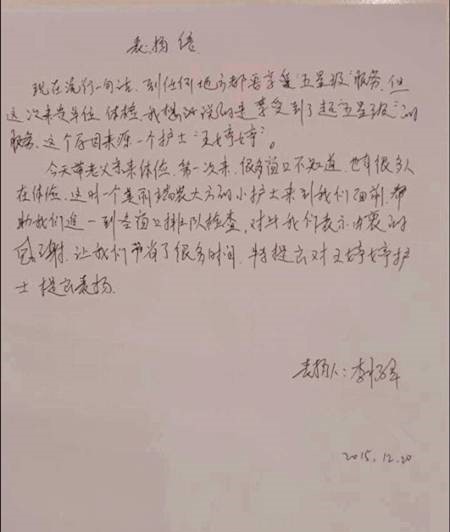 表扬信
现在流行一句话，到任何地方都要享受“五星级”服务，但
这次来贵单位体检，我想说的是享受到了超“五星级”的
服务，这个原因来源一个护士“王婷婷”。
今天带老父亲来体检，第一次来，很多窗口不知道，也有很多人
在体检，这时一个美丽端装大方的小护士来到我们面前，帮
助我们逐一到各窗口排队检查，对此我们表示内衷的
感谢，让我们节省了很多时间，特提出对王婷婷护
士提出表扬。
表扬人：李
2015.12.20